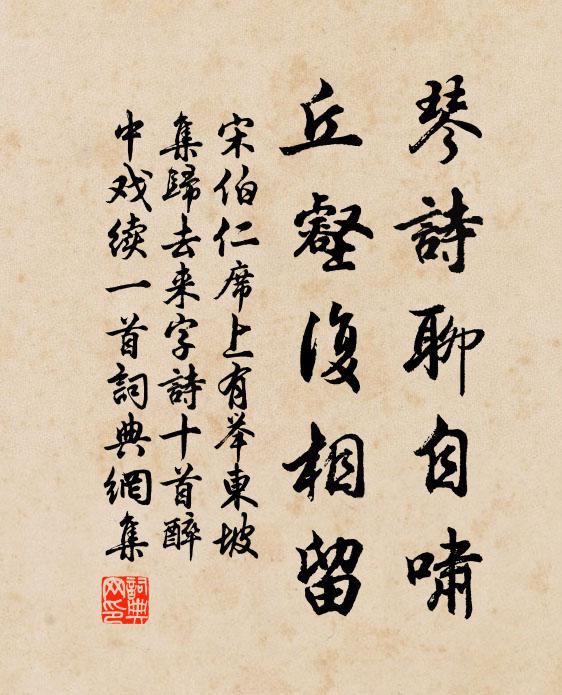 琴詩聊自嘯
丘壑復相留
宋伯仁席上有举東坡
集歸去来字詩十首醉
中戏续一首詞典網集
詞典網印